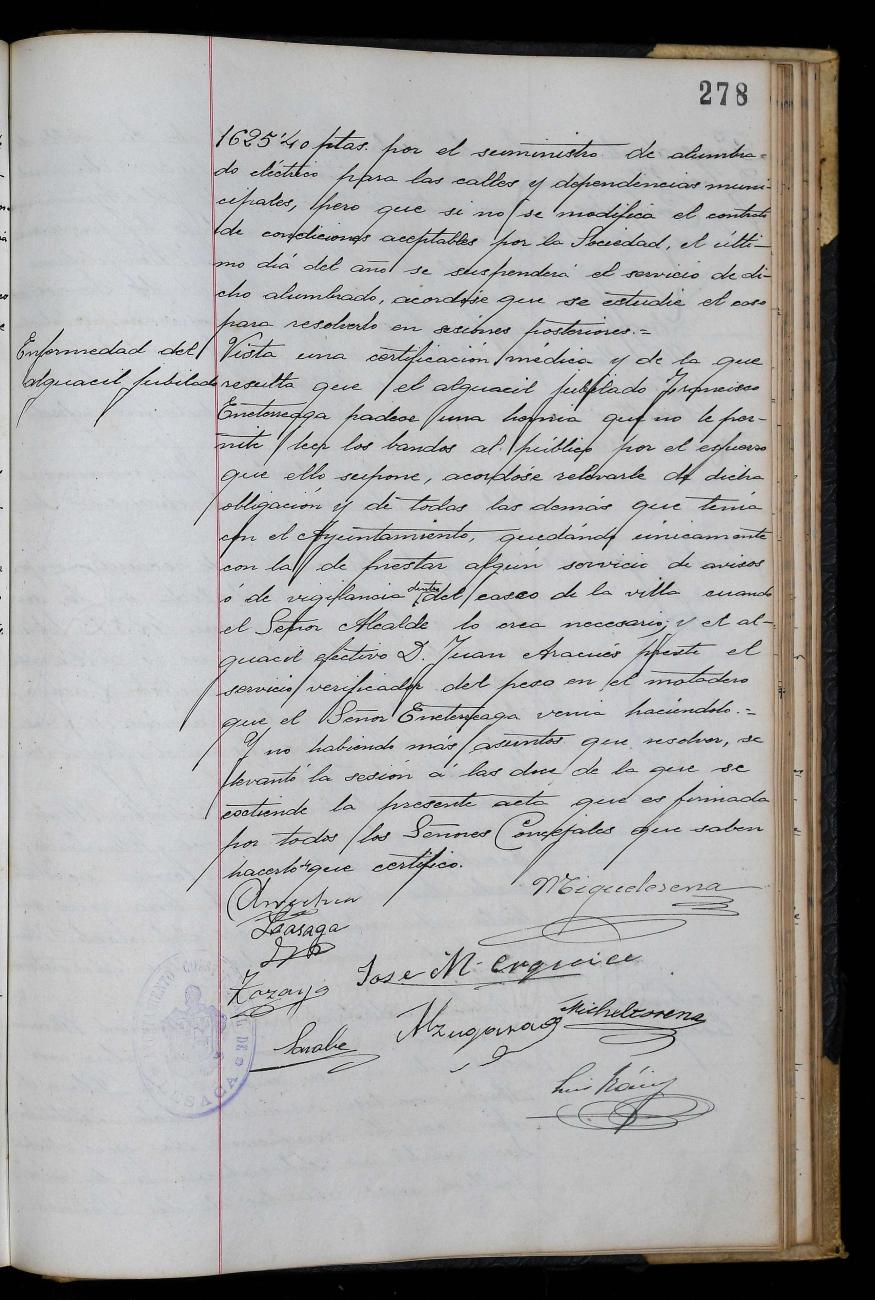 278
1625'40 ptas. por el suministro de alumbra=
do eléctrico para las calles y dependencias muni-
cipales, pero que si no se modifica el contrato
de condiciones aceptables por la Sociedad, el últi-
mo dia del año se suspenderá el servicio de di-
cho alumbrado, acordóse que se estudie el caso
para resolverlo en sesiones posteriores.=
Enfermedad del
alguacil jubilado
Vista una certificación médica y de la que
resulta que el alguacil jubilado Francisco
Eneterreaga padece una hernia que no le per-
mite leer los bandos al público por el esfuerzo
que ello supone, acordóse relevarle de dicha
obligación y de todas las demás que tenia
con el Ayuntamiento, quedando únicamente
con la de prestar algún servicio de avisos
ó de vigilancia dentro del casco de la villa cuando
el Señor Alcalde lo crea necesario; y el al-
guacil efectivo D. Juan Aracués preste el
servicio verificador del peso en el matadero
que el Señor Eneterreaga venia haciéndolo.=
Y no habiendo más asuntos que resolver, se
levantó la sesión á las doce de la que se
extiende la presente acta que es firmada
por todos los Señores Concejales que saben
hacerlo que certifico.
Miguelorena
Lasaga
José M. Erquicia
Zozaya
Michelorena
Alzugaray
Sarabe
Luis
AYUNTAMIENTO DE LESACA